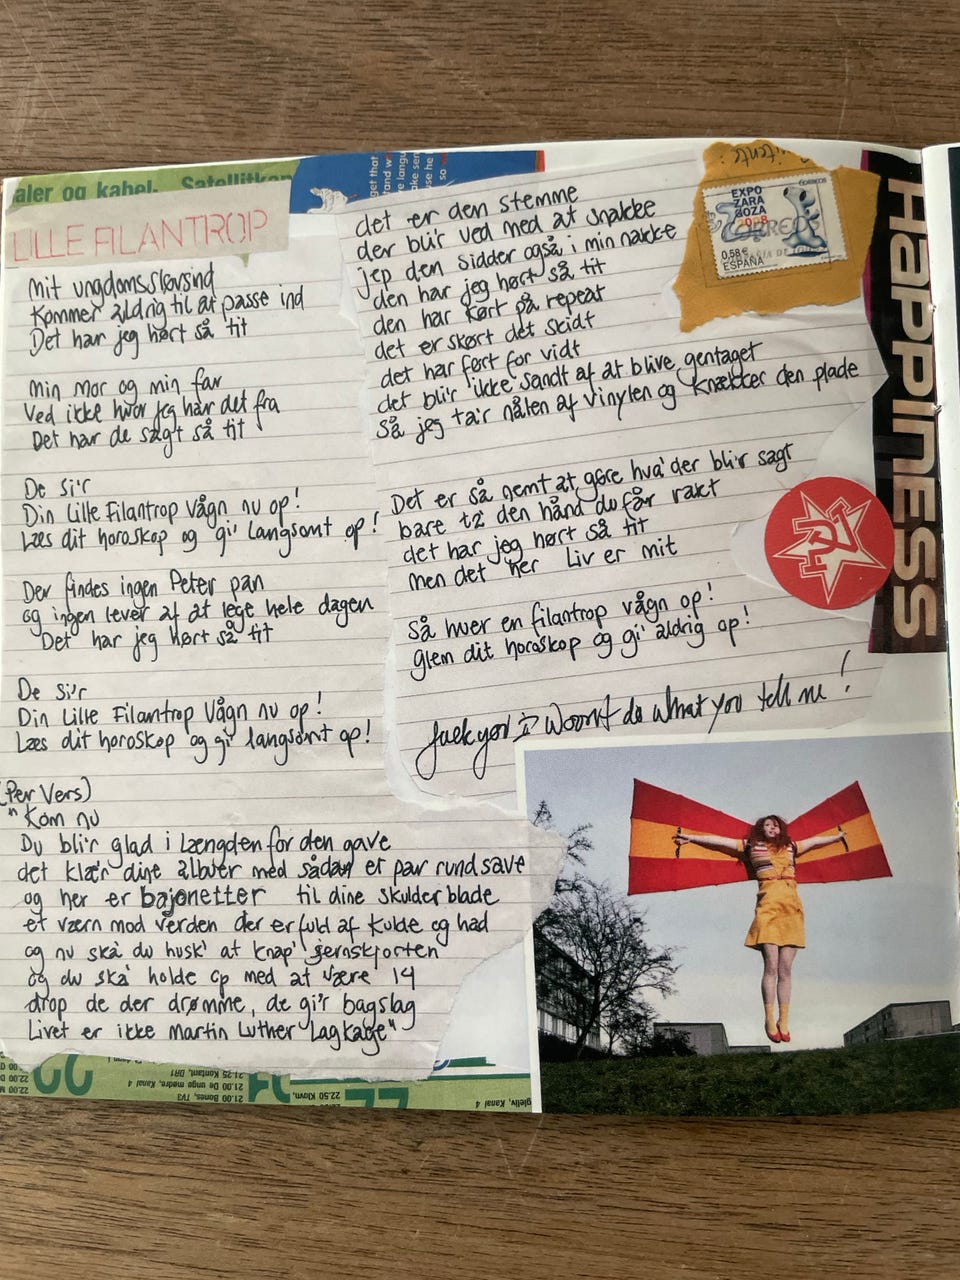 aler og kabel- Satellitkan
LILLE FILANTROP
Mit ungdomssløvsind
Kommer aldrig til at passe ind
Det har jeg hørt så tit
Min mor og min far
Ved ikke hvor jeg har det fra
Det har de sagt så tit
De si'r
Din Lille Filantrop Vågn nu op!
Læs dit horoskop og gi' langsomt op!
Der findes ingen Peter pan
og ingen lever af at lege hele dagen
Det har jeg hørt så tit
De si'r
Din Lille Filantrop Vågn nu op!
Læs dit horoskop og gi' langsomt op!
(Per Vers)
"Kom nu
Du bli'r glad i Længden for den gave
det klær' dine albuer med sådan et par rundsave
og her er bajonetter til dine skulderblade
et værn mod verden der er fuld af Kulde og had
og nu ska du husk' at knap' jernskjorten
og du ska' holde op med at være 14
drop de der drømme, de gi'r bagslag
Livet er ikke Martin Luther Lagkage"
det er den stemme
der bli'r ved med at snakke
jep den sidder også i min nakke
den har jeg hørt så tit
den har kørt på repeat
det er skørt det skidt
det har ført for vidt
det bli'r ikke sandt af at blive gentaget
Så jeg ta'r nålen af vinylen og Knækker den plade
Det er så nemt at gøre hva' der bli'r sagt
bare ta' den hånd du får rakt
det har jeg hørt så tit
men det her Liv er mit
Så hver en filantrop vågn op!
glem dit horoskop og gi' aldrig op!
fuck you i woont do what you tell me!
EXPO
ZARA
GOZA
2008
CORREOS
0,58€
ESPAÑA
HAPPINESS
get that
tand w
e langu
ake sen
use he
so
21.25 Kontant, DR1
21.00 De unge mødre, Kanal 4
21.00 Bones, TV3
22.50 Klovn,
22.00
gleliv, Kanal 4